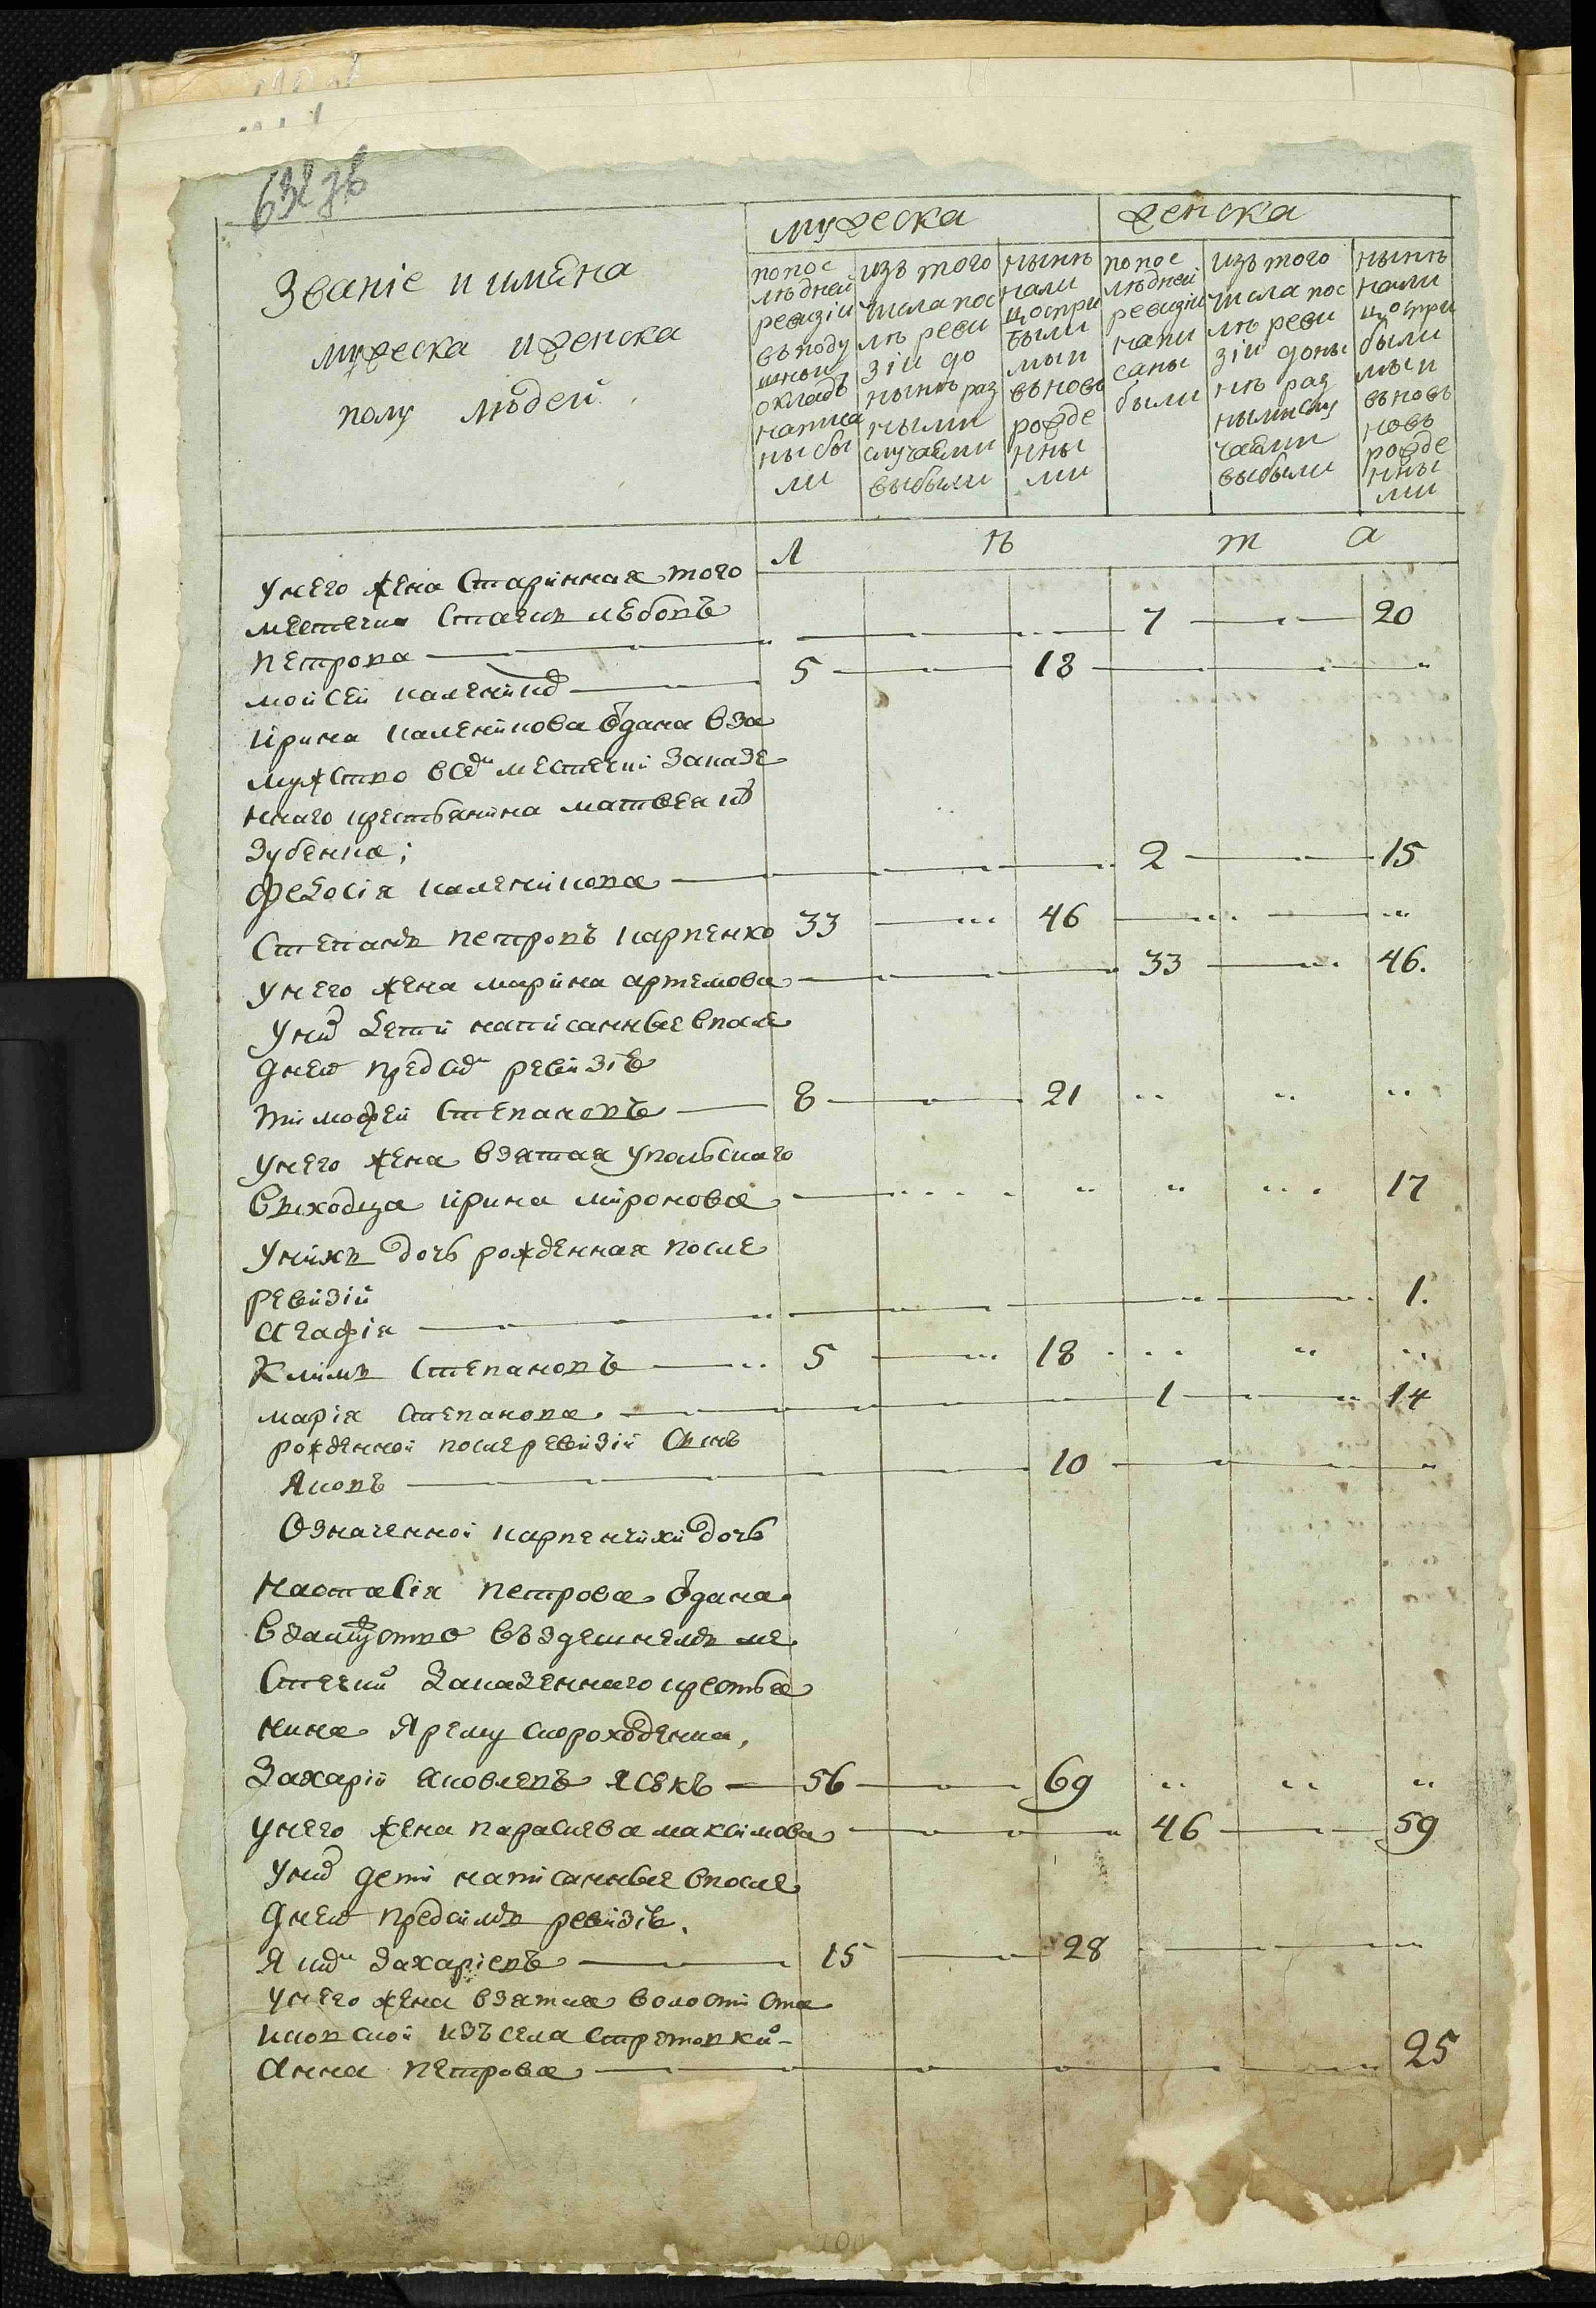 632 зв
Званіе и имѣна
мужеска и женска
полу людей
мужеска
женска
попос
лѣдней
ревизіи
въподу
шной
окладъ
написа
ны бы
ли
изъ того
числа пос
лѣ реви
зіи до
нынѣ раз
ными
случаями
выбыли
нынѣ
нали
цо спри
были
мы и
вьновь
рожде
нны
ми
попос
лѣдней
ревизіи
напи
саны
были
изъ того
числа пос
лѣ реви
зіи доны
нѣ раз
ными слу
чаями
выбыли
нынѣ
нали
цо спри
были
мы и
вьновь
новь
рожде
нны
ми
Л ѣ т а
унего жена Старинная того
местечка
петрова 7 20
мойсей 5 18
ирина каленикова ѿдана вза
мужство всем местечки заказе
ннаго крестьянина матвея
зубенка;
Федосія каленикова 2 15
Степанъ петровъ карпенко 33 46
унего жена марина артемова 33 46.
уних дети написанные впосле
дней пред сим ревизіе
тимофей Степановъ 8 21
унего жена взятая упольскаго
выходца ирина миронова 17
унихъ дочь рожденная после
ревизіи
агафія 1.
Климъ Степановъ 5 18
марія Степанова 1 14
рожденной послеревизіи Сынъ
Яковъ 10
Означенной карпенчихи дочь
настасія петрова ѿдана
взамужство въздешнемъ ме
Стечки заказеннаго крестья
нина Ярему скороходенка,
Захарій яковлевъ 56 69
унего жена параскева максимова 46 59
уних дети написанные впосле
дней предсимъ ревизіи.
Яким Захаріевъ 15 28
унего жена взятая волости
изъ села
Анна петрова 25